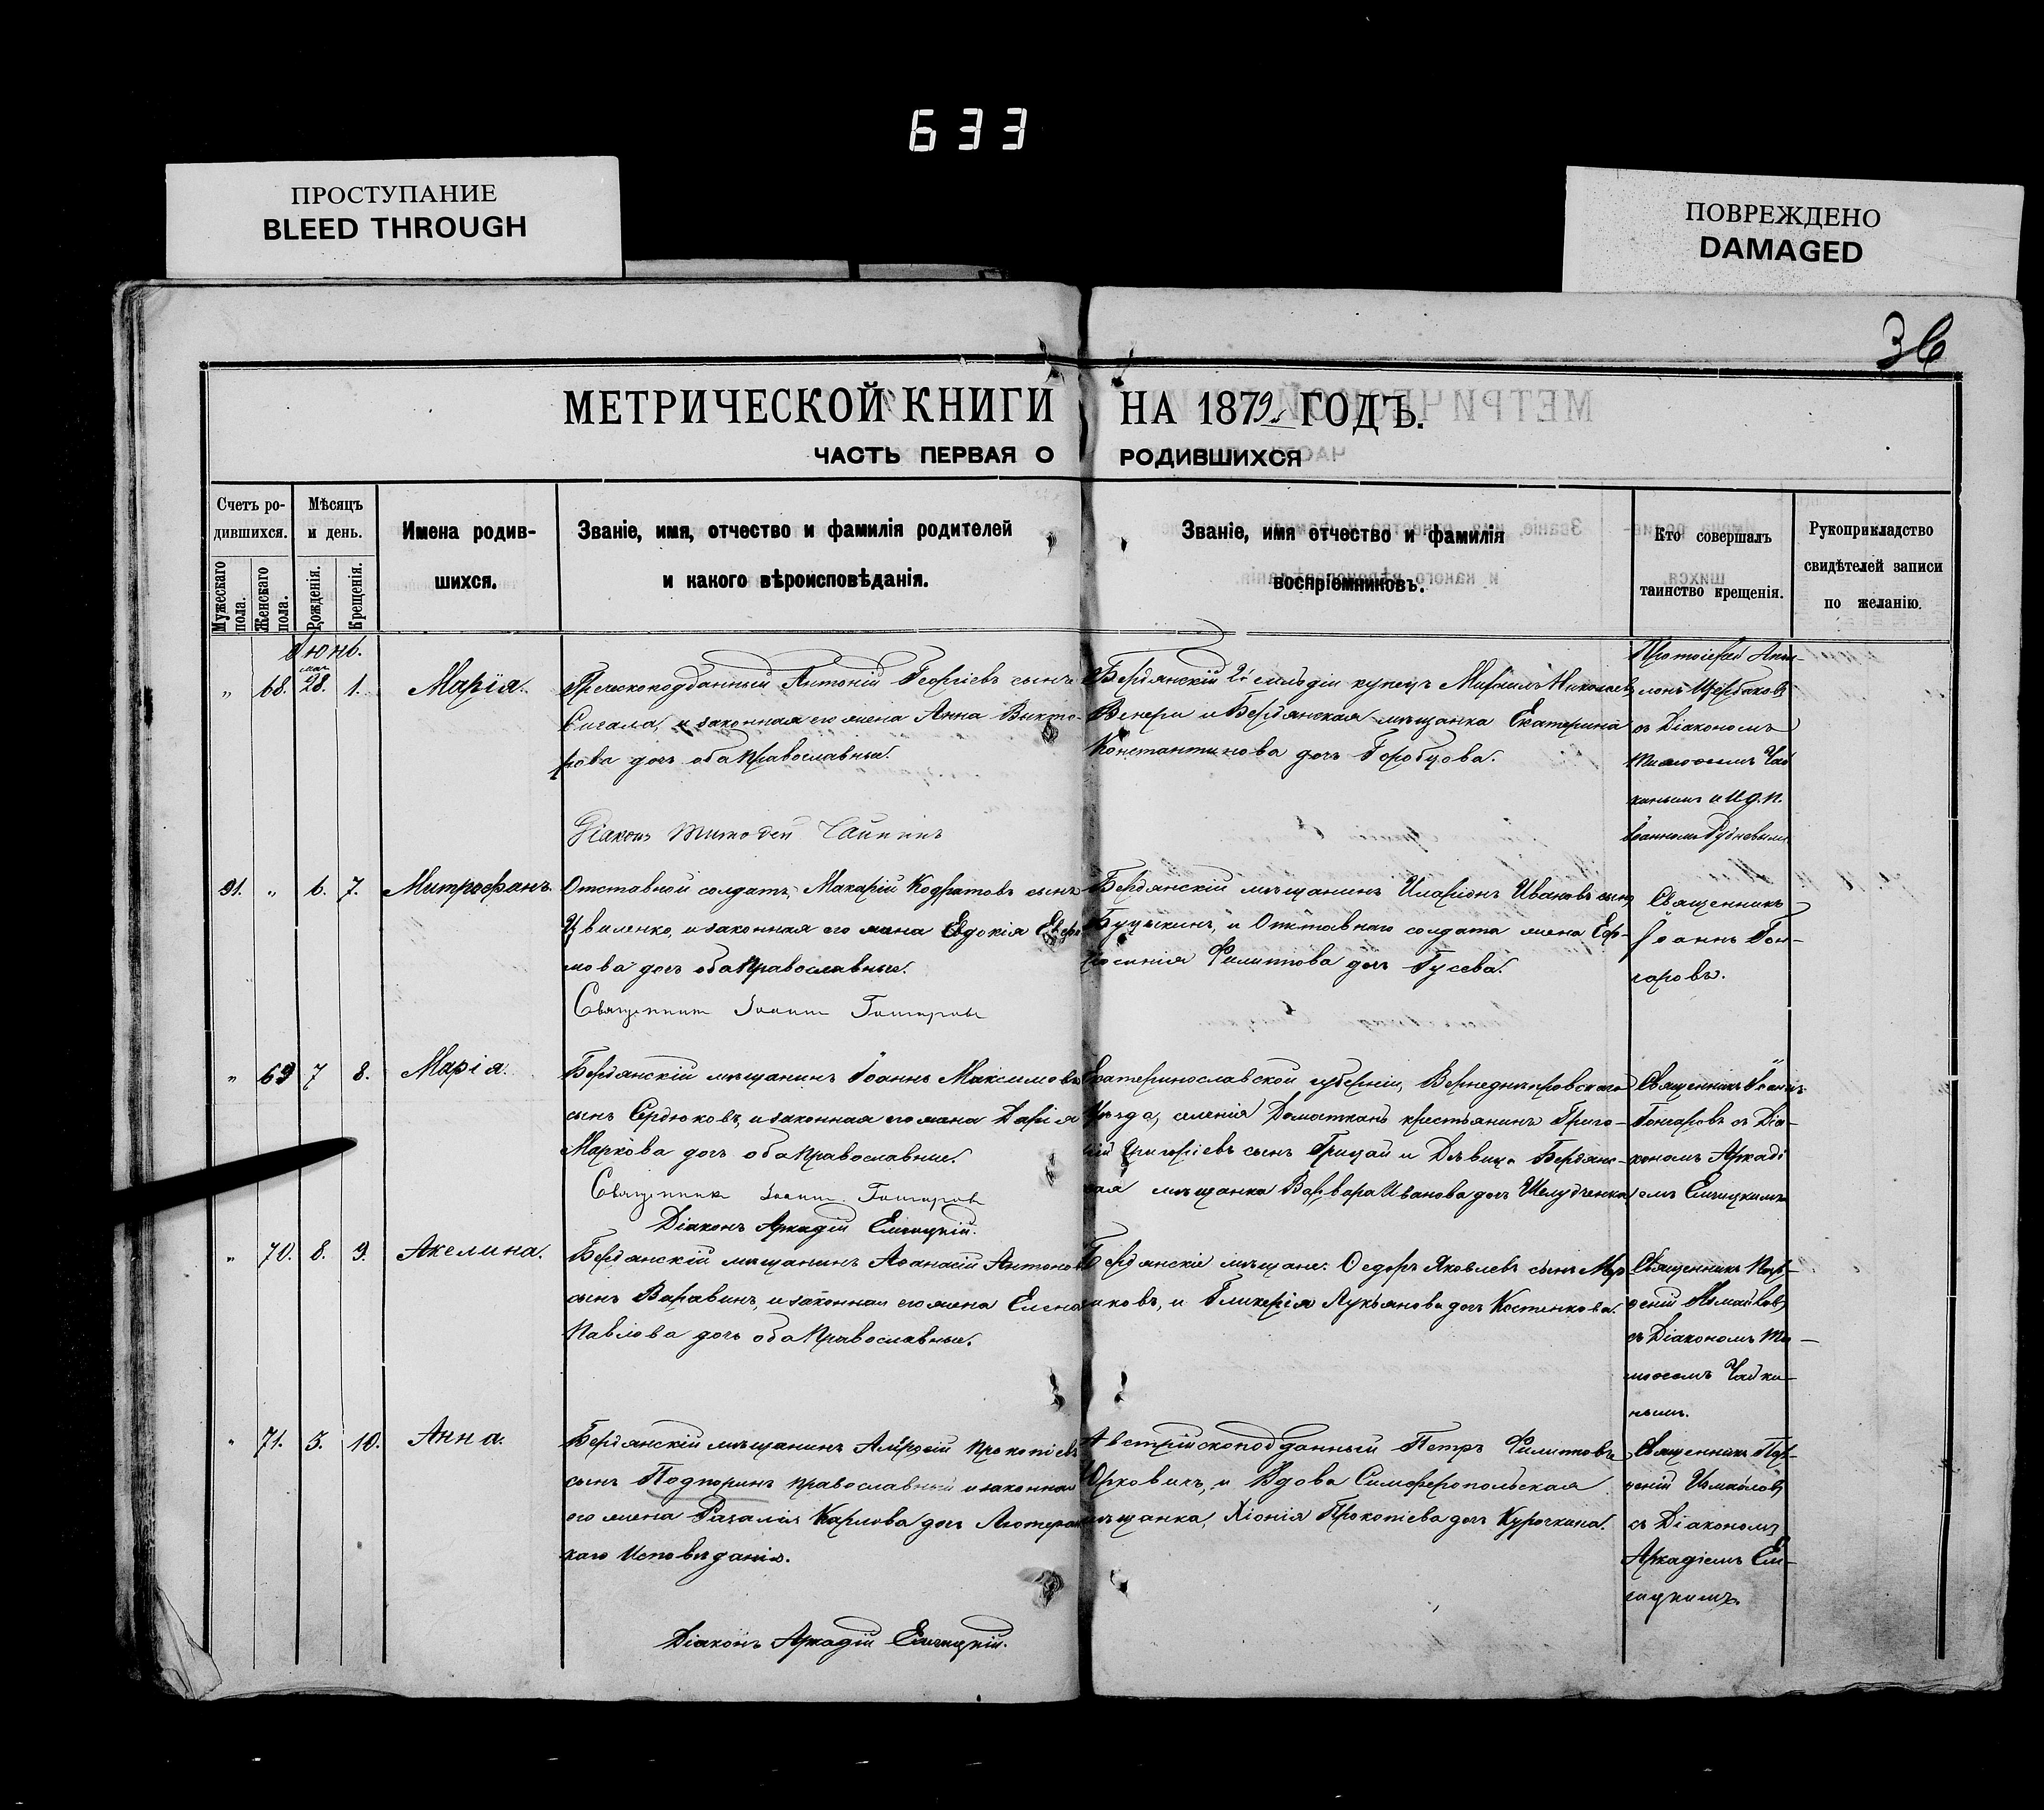 633
ПРОСТУПАНИЕ
BLEED THROUGH
ПОВРЕЖДЕНО
DAMAGED
36
МЕТРИЧЕСКОЙ КНИГИ НА 1879 ГОДЪ.
ЧАСТЬ ПЕРВАЯ О РОДИВШИХСЯ
Счетъ ро-
дившихся.
Мужескаго
пола.
Женскаго
пола.
Мѣсяцъ
и день.
Рожденія.
Крещенія.
Имена родив-
шихся.
Званіе, имя, отчество и фамилія родителей
и какого вѣроисповѣданія.
Званіе, имя отчество и фамилія
воспріемниковъ.
Кто совершалъ
таинство крещенія.
Рукоприкладство
свидѣтелей записи
по желанію.
Іюнь.
„ 68. мая 28. 1. Марія.
Греческоподданный Антоній Георгіевъ сынъ
Сигала, и законная его жена Анна Викто-
рова дочь оба православные.
Діаконъ Тимофей Чайкинъ
Бердянскій 2й гильдіи купецъ Михаилъ Николаевъ
Венери и Бердянская мѣщанка Екатерина
Константинова дочь Горобцова.
Протоіерей Апол-
лонъ Щербаковъ
съ Діакономъ
Тимоѳеемъ Чай
кинымъ и И.д.п.
Іоанномъ
91. „ 6. 7. Митрофанъ.
Отставной солдатъ, Макарій Кодратовъ сынъ
Цвиленко, и законная его жена Евдокія Ефи
мова дочь оба православные.
Священникъ Іоаннъ Гончаровъ
Бердянскій мѣщанинъ Иларіонъ Ивановъ сынъ
и Отставнаго солдата жена Еф-
росинія Филиппова дочь Гусева.
Священникъ
Іоаннъ Гон-
чаровъ.
„ 69 7 8. Марія.
Бердянскій мѣщанинъ Іоаннъ Максимовъ
сынъ Сердюковъ, и законная его жена Дарія
Маркова дочь оба православные.
Священникъ Іоаннъ Гончаровъ
Діаконъ Аркадій Елчицкій.
Екатеринославской губерніи, Верхнеднѣпровскаго
Уѣзда, селенія Домоткань крестьянинъ Григо-
рій Григоріевъ сынъ Грицай и Дѣвица Бердянс-
кая мѣщанка Варвара Иванова дочь Шелудченка
Священникъ Іоаннъ
Гончаровъ съ Діа-
кономъ Аркаді
емъ Елчицкимъ
„ 70. 8. 9. Акелина.
Бердянскій мѣщанинъ Аѳанасій Антоновъ
сынъ Варавинъ, и законная его жена Елена
Павлова дочь оба православные.
Бердянскіе мѣщане: Ѳедоръ Яковлевъ сынъ
иковъ, и Гликерія Лукьянова дочь Костенкова.
Священникъ Пор-
фирій Измайловъ
съ Діакономъ Ти-
моѳеемъ Чайки-
нымъ.
„ 71. 5. 10. Анна.
Бердянскій мѣщанинъ Прокопіевъ
сынъ Подпоринъ православный и законная
его жена Розалія Карлова дочь Лютеран
скаго Исповѣданія.
Діаконъ Аркадій Елчицкій.
Австрійскоподданный Петръ Филипповъ
Юрковичъ, и Вдова Симферопольская
мѣщанка, Хіонія Прокопіева дочь Курочкина.
Священникъ Пор-
фирій Измайловъ
съ Діакономъ
Аркадіемъ Ел-
чицкимъ.